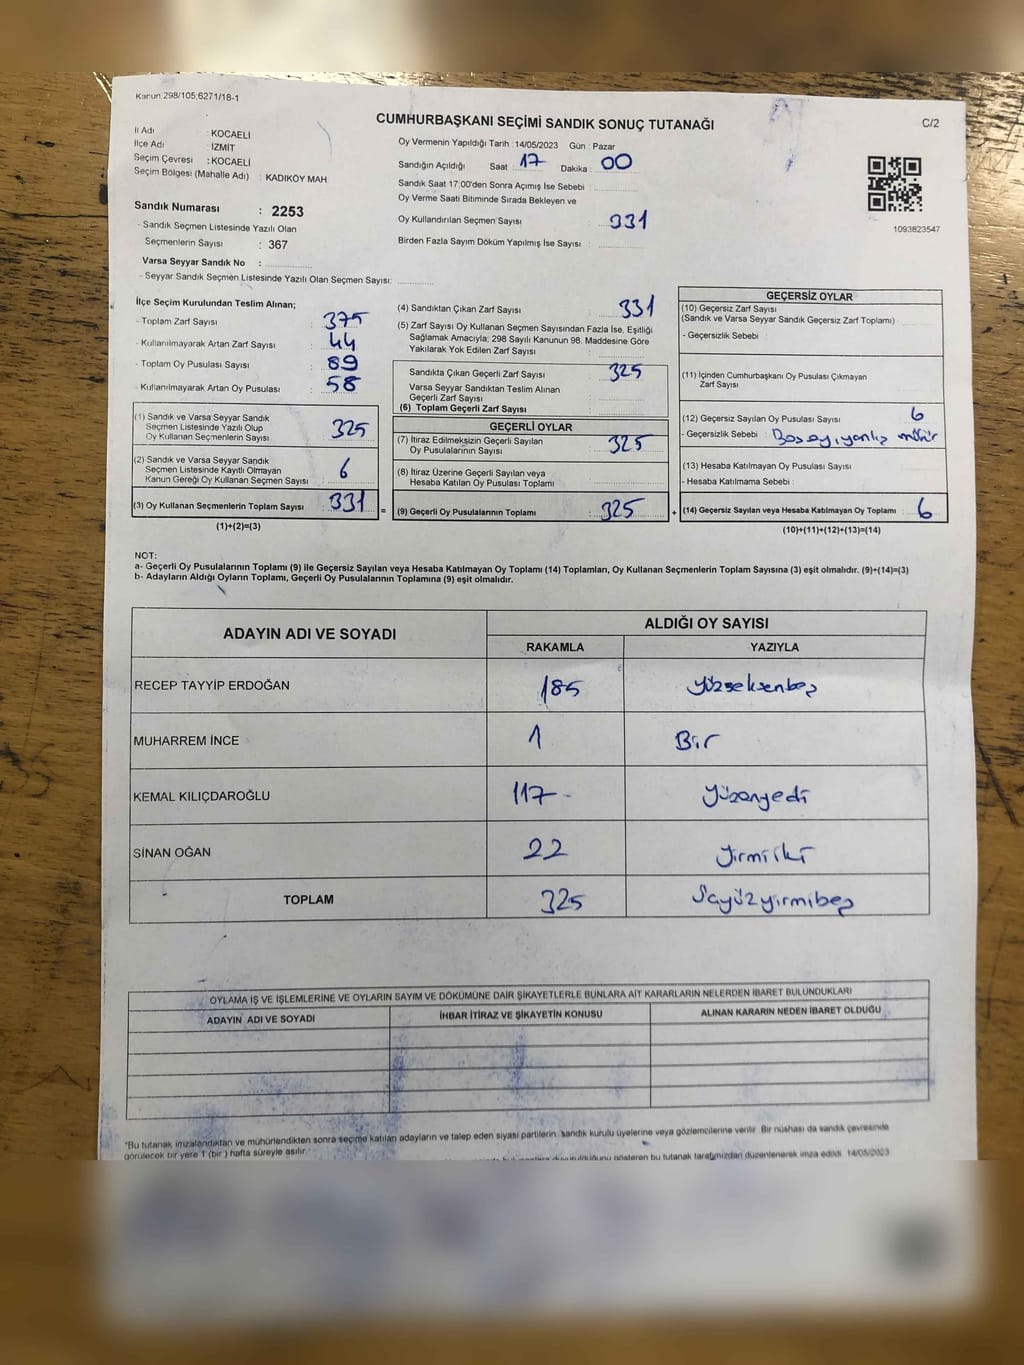 Kanun.298/105;6271/18-1
CUMHURBAŞKANI SEÇİMİ SANDIK SONUÇ TUTANAĞI
C/2
İl Adı : KOCAELİ
İlçe Adı : İZMİT
Seçim Çevresi : KOCAELİ
Seçim Bölgesi (Mahalle Adı) : KADIKÖY MAH.
Sandık Numarası : 2253
- Sandık Seçmen Listesinde Yazılı Olan
Seçmenlerin Sayısı : 367
Varsa Seyyar Sandık No :
- Seyyar Sandık Seçmen Listesinde Yazılı Olan Seçmen Sayısı:
Oy Vermenin Yapıldığı Tarih : 14/05/2023 Gün : Pazar
Sandığın Açıldığı Saat : 17 Dakika : 00
Sandık Saat 17:00'den Sonra Açılmış İse Sebebi :
Oy Verme Saati Bitiminde Sırada Bekleyen ve
Oy Kullandırılan Seçmen Sayısı : 331
Birden Fazla Sayım Döküm Yapılmış İse Sayısı :
1093823547
İlçe Seçim Kurulundan Teslim Alınan;
- Toplam Zarf Sayısı : 375
- Kullanılmayarak Artan Zarf Sayısı : 44
- Toplam Oy Pusulası Sayısı : 89
- Kullanılmayarak Artan Oy Pusulası : 58
(1) Sandık ve Varsa Seyyar Sandık
Seçmen Listesinde Yazılı Olup
Oy Kullanan Seçmenlerin Sayısı : 325
(2) Sandık ve Varsa Seyyar Sandık
Seçmen Listesinde Kayıtlı Olmayan
Kanun Gereği Oy Kullanan Seçmen Sayısı : 6
(3) Oy Kullanan Seçmenlerin Toplam Sayısı : 331
(1)+(2)=(3)
(4) Sandıktan Çıkan Zarf Sayısı : 331
(5) Zarf Sayısı Oy Kullanan Seçmen Sayısından Fazla İse, Eşitliği
Sağlamak Amacıyla; 298 Sayılı Kanunun 98. Maddesine Göre
Yakılarak Yok Edilen Zarf Sayısı :
Sandıkta Çıkan Geçerli Zarf Sayısı : 325
Varsa Seyyar Sandıktan Teslim Alınan
Geçerli Zarf Sayısı :
(6) Toplam Geçerli Zarf Sayısı :
GEÇERLİ OYLAR
(7) İtiraz Edilmeksizin Geçerli Sayılan
Oy Pusulalarının Sayısı : 325
(8) İtiraz Üzerine Geçerli Sayılan veya
Hesaba Katılan Oy Pusulası Toplamı :
= (9) Geçerli Oy Pusulalarının Toplamı : 325
GEÇERSİZ OYLAR
(10) Geçersiz Zarf Sayısı
(Sandık ve Varsa Seyyar Sandık Geçersiz Zarf Toplamı) :
- Geçersizlik Sebebi :
(11) İçinden Cumhurbaşkanı Oy Pusulası Çıkmayan
Zarf Sayısı :
(12) Geçersiz Sayılan Oy Pusulası Sayısı : 6
- Geçersizlik Sebebi : Boş oy, yanlış mühür
(13) Hesaba Katılmayan Oy Pusulası Sayısı :
- Hesaba Katılmama Sebebi :
+ (14) Geçersiz Sayılan veya Hesaba Katılmayan Oy Toplamı : 6
(10)+(11)+(12)+(13)=(14)
NOT:
a- Geçerli Oy Pusulalarının Toplamı (9) ile Geçersiz Sayılan veya Hesaba Katılmayan Oy Toplamı (14) Toplamları, Oy Kullanan Seçmenlerin Toplam Sayısına (3) eşit olmalıdır. (9)+(14)=(3)
b- Adayların Aldığı Oyların Toplamı, Geçerli Oy Pusulalarının Toplamına (9) eşit olmalıdır.
ADAYIN ADI VE SOYADI ALDIĞI OY SAYISI
RAKAMLA YAZIYLA
RECEP TAYYİP ERDOĞAN 185 Yüzseksenbeş
MUHARREM İNCE 1 Bir
KEMAL KILIÇDAROĞLU 117 - Yüzonyedi
SİNAN OĞAN 22 Yirmiiki
TOPLAM 325 Üçyüzyirmibeş
OYLAMA İŞ VE İŞLEMLERİNE VE OYLARIN SAYIM VE DÖKÜMÜNE DAİR ŞİKAYETLERLE BUNLARA AİT KARARLARIN NELERDEN İBARET BULUNDUKLARI
ADAYIN ADI VE SOYADI İHBAR İTİRAZ VE ŞİKAYETİN KONUSU ALINAN KARARIN NEDEN İBARET OLDUĞU
*Bu tutanak imzalandıktan ve mühürlendikten sonra seçime katılan adayların ve talep eden siyasi partilerin, sandık kurulu üyelerine veya gözlemcilerine verilir. Bir nüshası da sandık çevresinde
görülecek bir yere 1 (bir ) hafta süreyle asılır.
gösteren bu tutanak tarafımızdan düzenlenerek imza edildi. 14/05/2023